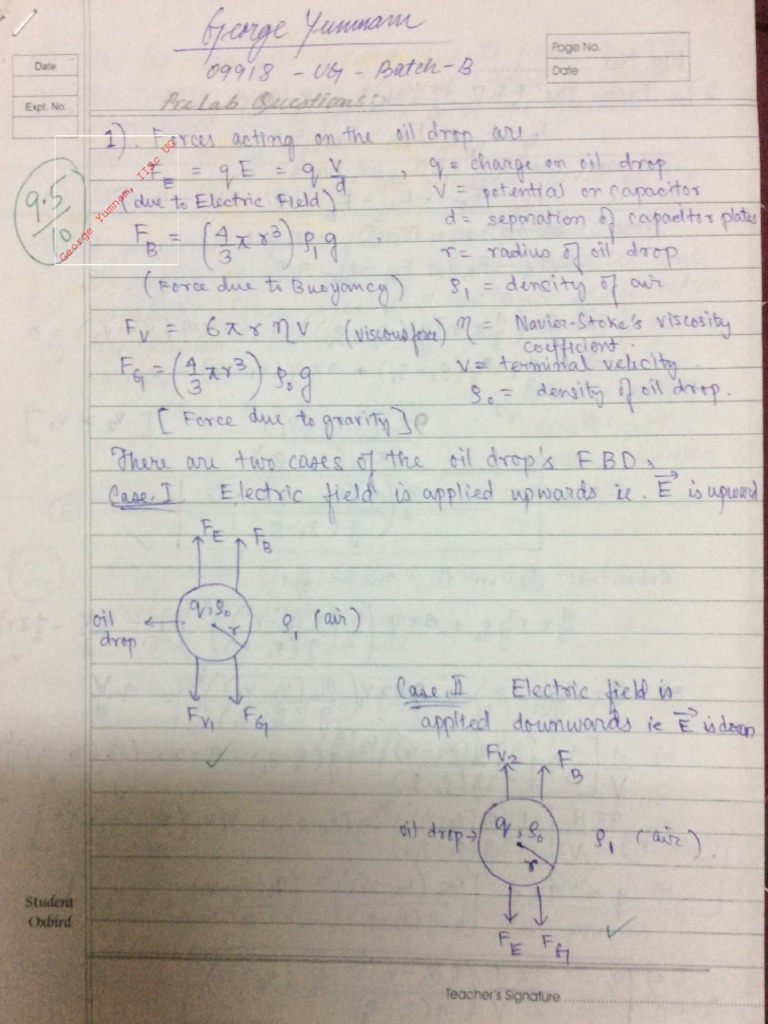 George Yumnam
09918 - UG - Batch-B
Page No.
Date
Date
Expt. No.
PreLab Questions:
9.5/10
George Yumnam, IISc UG
1). Forces acting on the oil drop are.
F_E = qE = q V/d , q = charge on oil drop
(due to Electric Field) V = potential on capacitor
d = separation of capacitor plates
F_B = (4/3 π r³) ρ₁ g , r = radius of oil drop
(Force due to Buoyancy) ρ₁ = density of air
F_V = 6 π r η v (viscous force) η = Navier-Stoke's viscosity
coefficient.
F_G = (4/3 π r³) ρ₀ g v = terminal velocity
ρ₀ = density of oil drop.
[Force due to gravity]
There are two cases of the oil drop's FBD,
Case. I Electric field is applied upwards ie. E⃗ is upward
F_E F_B
oil drop
q, ρ₀
r
ρ₁ (air)
F_V₁ F_G
Case. II Electric field is
applied downwards ie E⃗ is down
F_V₂ F_B
oil drop →
q, ρ₀
r
ρ₁ (air).
F_E F_G
Student
Oxbird
Teacher's Signature